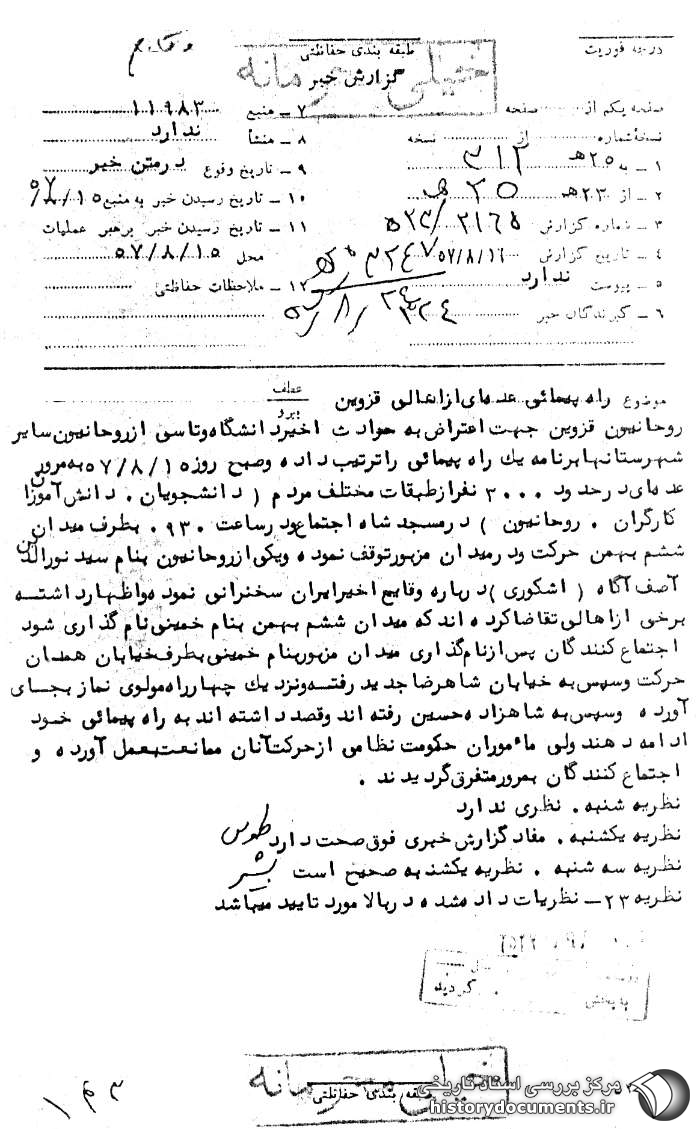 درجه فوریت
طبقه بندی حفاظتی
خیلی محرمانه
گزارش خبر
صفحه یکم از صفحه
نسخه شماره از نسخه
۱ - به ۲۵ هـ ۳۱۲
۲ - از ۲۳ هـ ۲۵ هـ
۳ - شماره گزارش ۲۱۶۵ / ۲۳ هـ
۴ - تاریخ گزارش ۵۷/۸/۱۶
۵ - پیوست ندارد
۶ - گیرندگان خبر
۷ - منبع ۱۱۹۸۳
۸ - منشأ ندارد
۹ - تاریخ وقوع درمتن خبر
۱۰ - تاریخ رسیدن خبر به منبع ۵۷/۸/۱۵
۱۱ - تاریخ رسیدن خبر برهبر عملیات
محل ۵۷/۸/۱۵
۱۲ - ملاحظات حفاظتی
موضوع راه پیمائی عده ای ازاهالی قزوین
عطف
پیرو
روحانیون قزوین جهت اعتراض به حوادث اخیردانشگاه وتاسی ازروحانیون سایر
شهرستانها برنامه یك راه پیمائی راترتیب داده وصبح روز ۵۷/۸/۱۵ به مرور
عده ای درحدود ۳۰۰۰ نفرازطبقات مختلف مردم ( دانشجویان . دانش آموزان
کارگران . روحانیون ) درمسجد شاه اجتماع ودرساعت ۹۳۰ . بطرف میدان
ششم بهمن حرکت ودرمیدان مزبورتوقف نموده ویکی ازروحانیون بنام سید نورالدین
آصف آگاه ( اشکوری ) درباره وقایع اخیرایران سخنرانی نموده واظهارداشته
برخی ازاهالی تقاضا کرده اند که میدان ششم بهمن بنام خمینی نام گذاری شود
اجتماع کنندگان پس ازنام گذاری میدان مزبوربنام خمینی بطرف خیابان همدان
حرکت وسپس به خیابان شاهرضا جدید رفته ونزدیك چهارراه مولوی نماز بجای
آورده وسپس به شاهزاده حسین رفته اند وقصد داشته اند به راه پیمائی خود
ادامه دهند ولی مأموران حکومت نظامی ازحرکت آنان ممانعت بعمل آورده و
اجتماع کنندگان بمرورمتفرق گردیدند .
نظریه شنبه . نظری ندارد
نظریه یکشنبه . مفاد گزارش خبری فوق صحت دارد طوس
نظریه سه شنبه . نظریه یکشنبه صحیح است بشر
نظریه ۲۳ - نظریات داده شده دربالا مورد تایید میباشد
به بخش
گردید
خیلی محرمانه
طبقه بندی حفاظتی
۱۴۳
مرکز بررسی اسناد تاریخی
historydocuments.ir